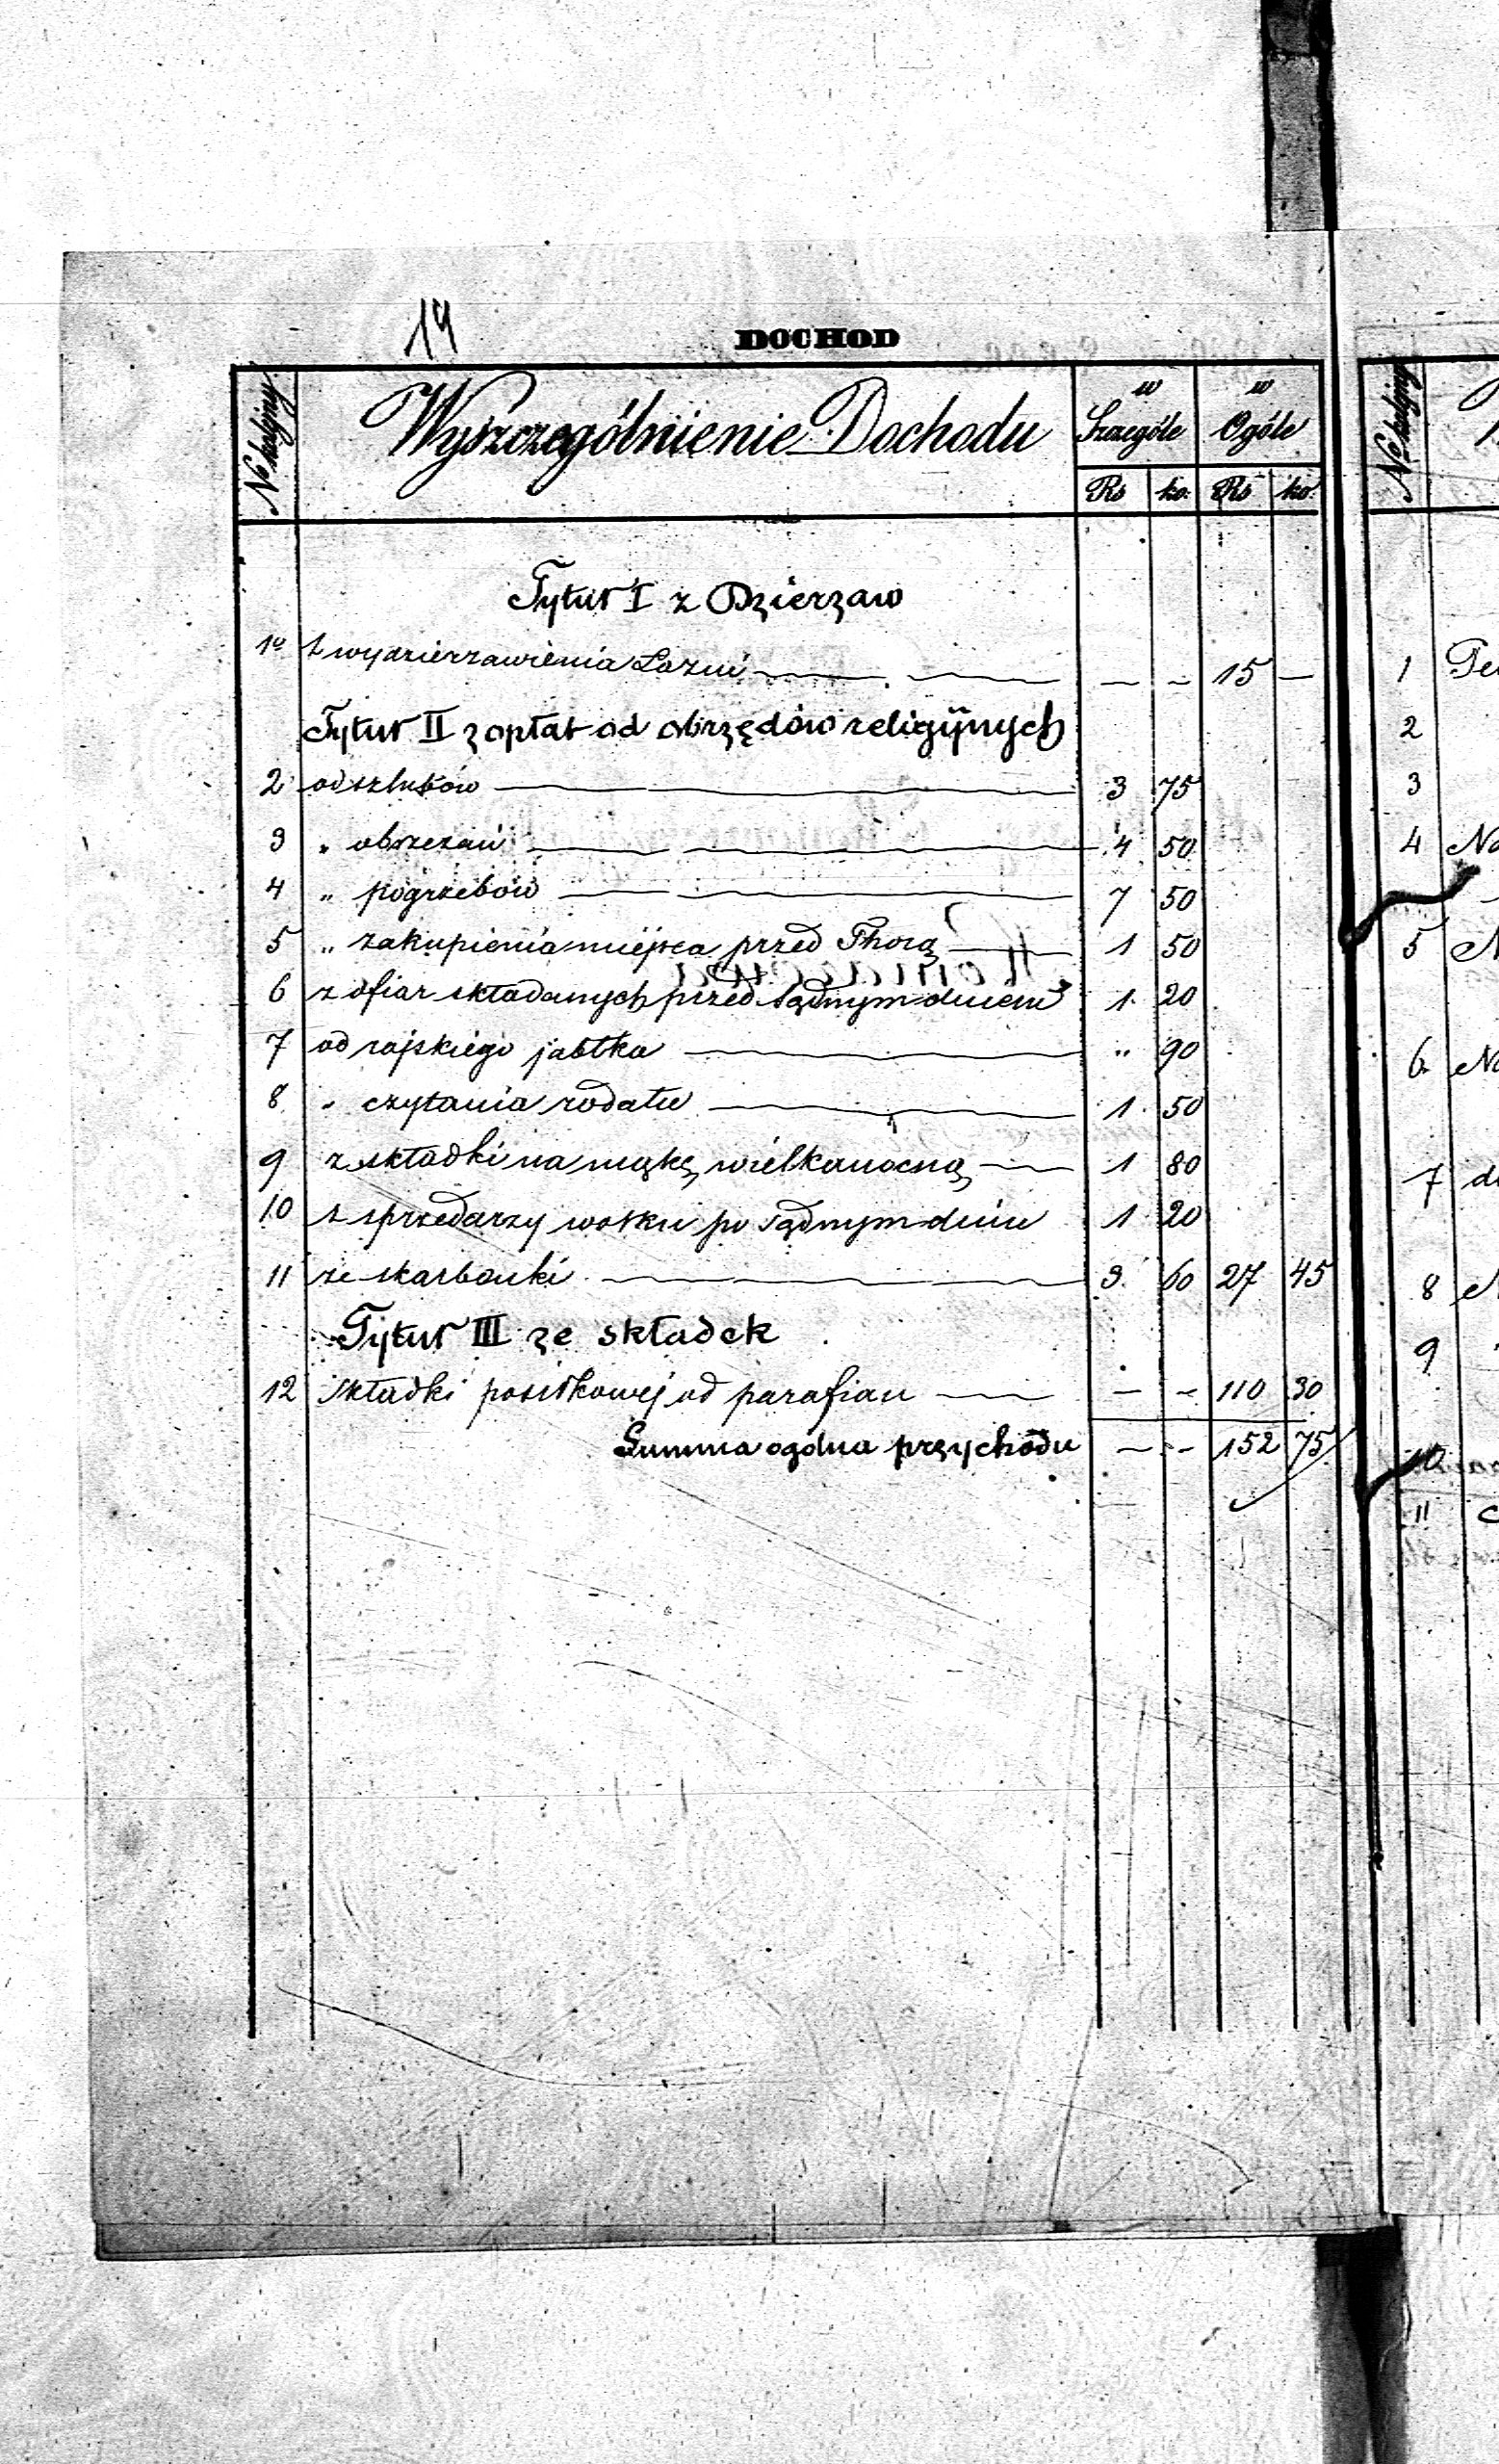 14
DOCHOD
No kolejny Wyszczególnienie Dochodu w Szczególe w Ogóle
Rs ko: Rs ko:
Tytuł I z Dzierzaw
1o Z wydzierzawienia Łazni — — 15 —
Tytuł II z opłat od obrzędów religijnych
2 od szlubów 3 75
3 " obrzezań 4 50
4 " pogrzebów 7 50
5 " zakupienia miejsca przed Thorą 1 50
6 z ofiar składanych przed sądnym dniem 1 20
7 od rajskiego jabłka " 90
8 " czytania rodału 1 50
9 z składki na mąkę wielkanocną 1 80
10 z sprzedarzy wosku po sądnym dniu 1 20
11 ze skarbonki 3 60 27 45
Tytuł III ze składek
12 składki posiłkowej od parafian — — 110 30
Summa ogólna przychodu — — 152 75
No kolejny
1
2
3
4
5
6
7
8
9
10
11